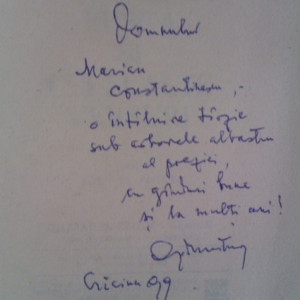 Domnului
Marian
Constantinescu,-
o întîlnire tîrzie
sub arborele albastru
al poeziei,
cu gînduri bune
și la mulți ani!